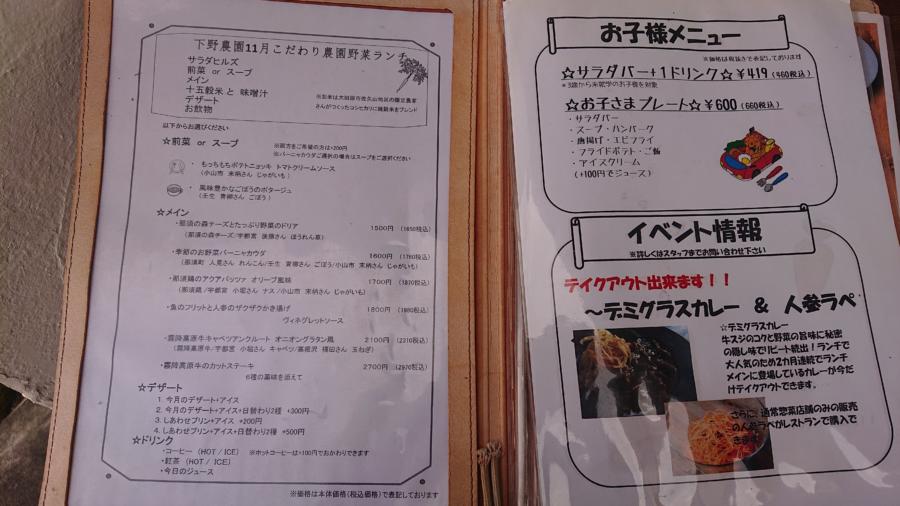 下野農園11月こだわり農園野菜ランチ
サラダヒルズ
前菜 or スープ
メイン
十五穀米 と 味噌汁
デザート
お飲物
※お米は大田原市佐久山地区の限定農家
さんがつくったコシヒカリに雑穀米をブレンド
以下からお選びください
☆前菜 or スープ
※両方をご希望の方は+200円
※バーニャカウダご選択の場合はスープをご選択ください
・ もっちもちポテトニョッキ トマトクリームソース
(小山市 末柄さん じゃがいも)
・ 風味豊かなごぼうのポタージュ
(壬生 青柳さん ごぼう)
☆メイン
・那須の森チーズとたっぷり野菜のドリア 1500円 (1650税込)
(那須の森チーズ/宇都宮 後藤さん ほうれん草)
・季節のお野菜バーニャカウダ 1600円 (1760税込)
(那須町 人見さん れんこん/壬生 青柳さん ごぼう/小山市 末柄さん じゃがいも)
・那須鶏のアクアパッツァ オリーブ風味 1700円 (1870税込)
(那須鶏/宇都宮 小堀さん ナス/小山市 末柄さん じゃがいも)
・魚のフリットと人参のザクザクかき揚げ 1800円 (1980税込)
ヴィネグレットソース
・霧降高原牛キャベツアンクルート オニオングラタン風 2100円 (2310税込)
(霧降高原牛/宇都宮 小堀さん キャベツ/高根沢 福田さん 玉ねぎ)
・霧降高原牛のカットステーキ 2700円 (2970税込)
6種の薬味を添えて
☆デザート
1. 今月のデザート+アイス
2. 今月のデザート+アイス+日替わり2種 +300円
3. しあわせプリン+アイス +200円
4. しあわせプリン+アイス+日替わり2種 +500円
☆ドリンク
・コーヒー (HOT / ICE) ※ホットコーヒーは+100円でおかわりできます
・紅茶 (HOT / ICE)
・今日のジュース
※価格は本体価格(税込価格)で表記しております
お子様メニュー
※価格は税抜きで表記しております
☆サラダバー+1ドリンク☆¥419 (460税込)
*3歳から未就学のお子様を対象
☆お子さまプレート☆¥600 (660税込)
・サラダバー
・スープ・ハンバーグ
・唐揚げ・エビフライ
・フライドポテト・ご飯
・アイスクリーム
(+100円でジュース)
イベント情報
※詳しくはスタッフまでお問い合わせ下さい
テイクアウト出来ます!!
～デミグラスカレー & 人参ラペ
☆デミグラスカレー
牛スジのコクと野菜の旨味に秘密
の隠し味でリピート続出!ランチで
大人気のため2カ月連続でランチ
メインに登場しているカレーが今だ
けテイクアウトできます。
さらに、通常惣菜店舗のみの販売
の人参ラペがレストランで購入で
きます。